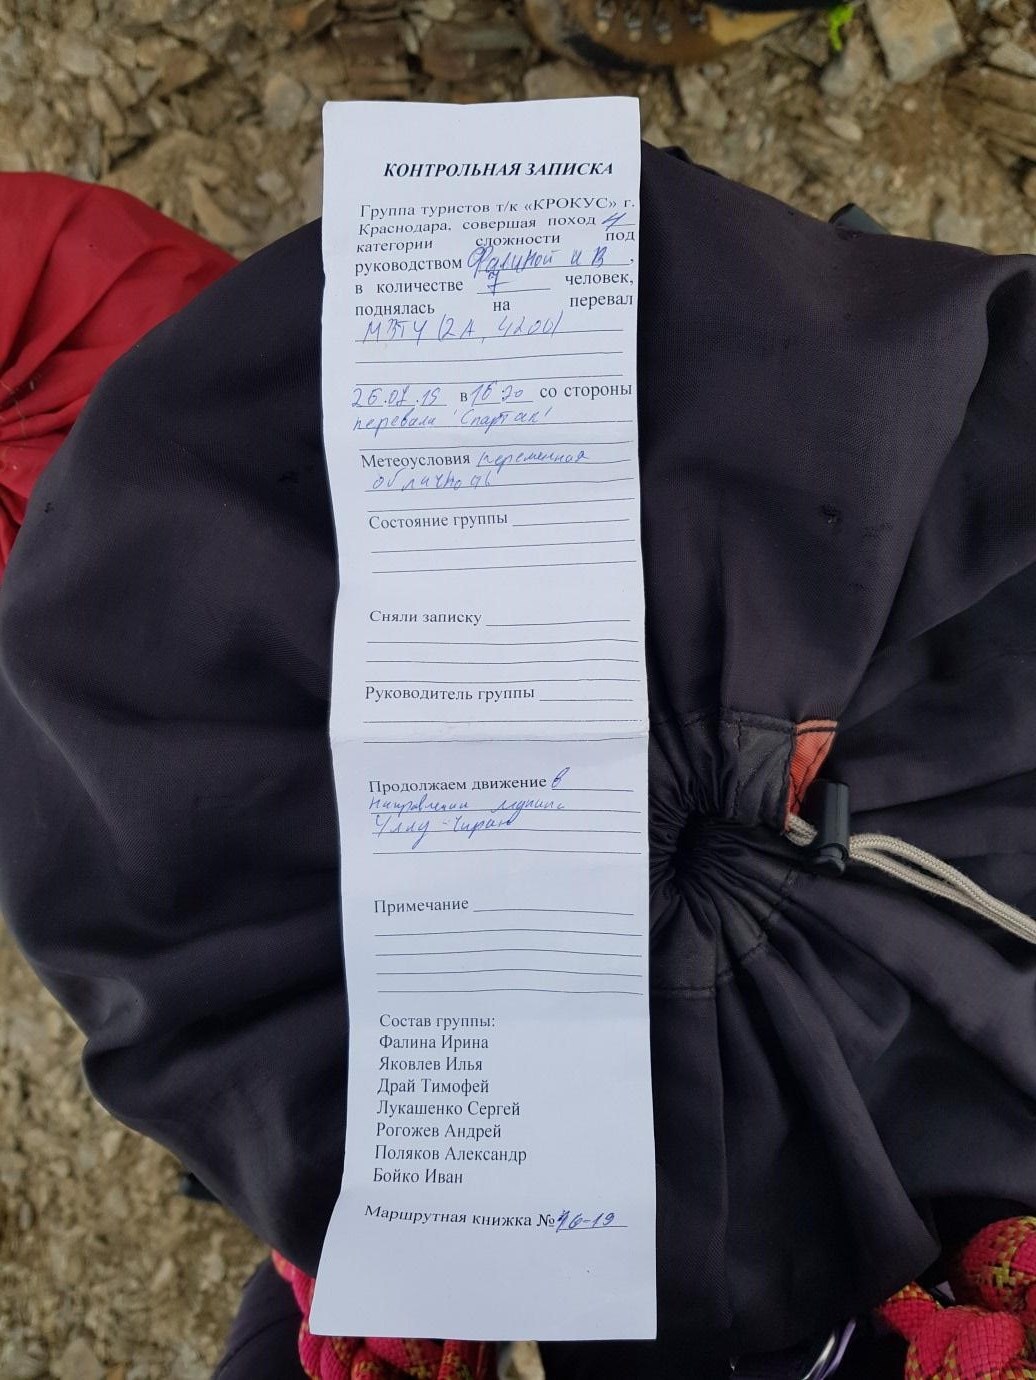 КОНТРОЛЬНАЯ ЗАПИСКА
Группа туристов т/к «КРОКУС» г.
Краснодара, совершая поход 4
категории сложности под
руководством Фалиной И В,
в количестве 7 человек,
поднялась на перевал
МВТУ (2А, 4200)
в 16:20 со стороны
перевала "Спартак"
Метеоусловия переменная
облачность
Состояние группы
Сняли записку
Руководитель группы
Продолжаем движение в
направлении
Уллу-Чиран
Примечание
Состав группы:
Фалина Ирина
Яковлев Илья
Драй Тимофей
Лукашенко Сергей
Рогожев Андрей
Поляков Александр
Бойко Иван
Маршрутная книжка №